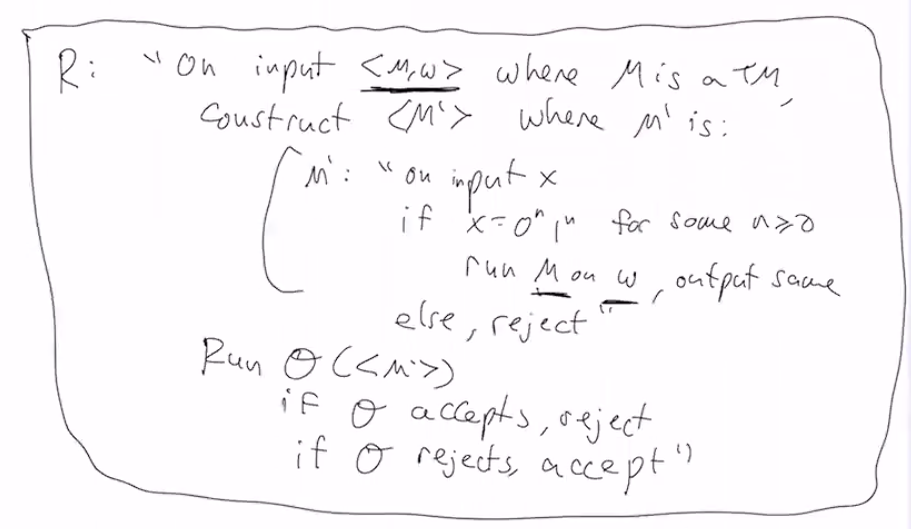 R: "On input <M,w> where M is a TM,
construct <M'> where M' is:
M': "on input x
if x=0ⁿ1ⁿ for some n≥0
run M on w, output same
else, reject"
Run Θ(<M'>)
if Θ accepts, reject
if Θ rejects, accept"